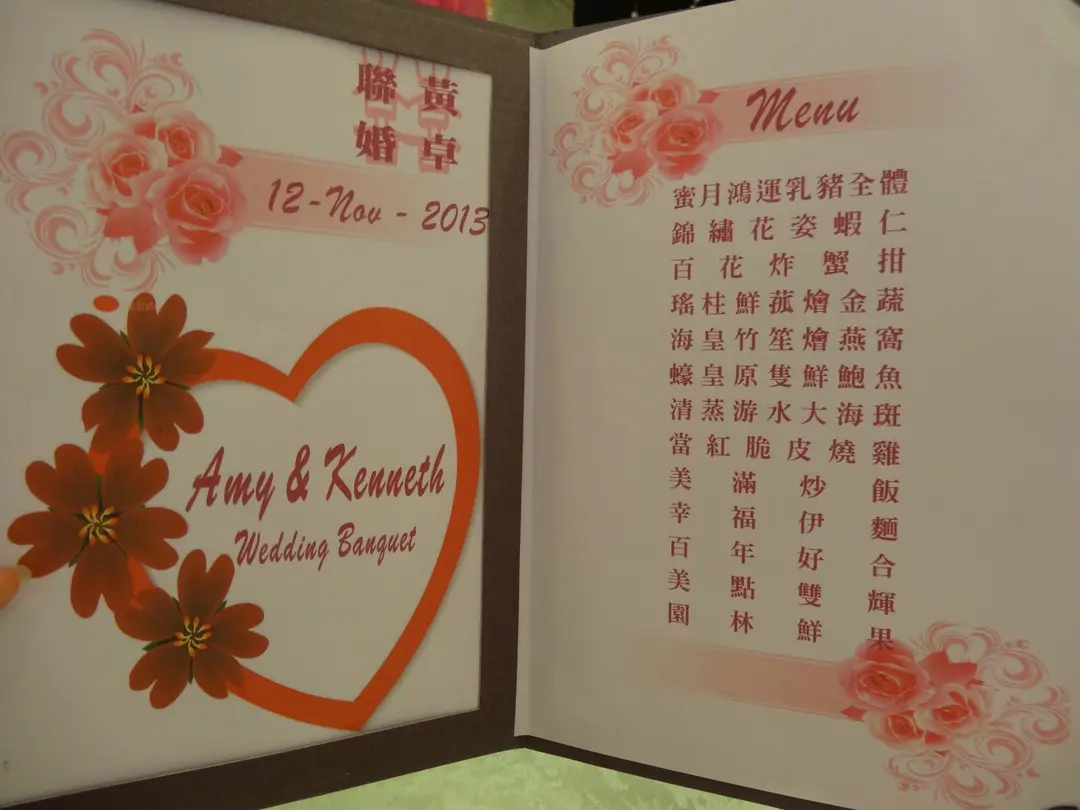 黃卓
聯婚
12-Nov - 2013
Amy & Kenneth
Wedding Banquet
Menu
蜜月鴻運乳豬全體
錦繡花姿蝦仁
百花炸蟹拑
瑤柱鮮菰燴金蔬
海皇竹笙燴燕窩
蠔皇原隻鮮鮑魚
清蒸游水大海斑
當紅脆皮燒雞
美滿炒飯
幸福伊麵
百年好合
美點雙輝
園林鮮果